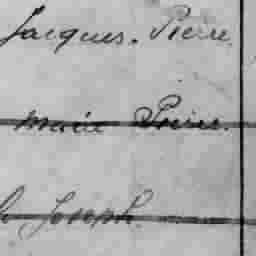 Jacques. Pierre.
Marie Pierre.
h Joseph.